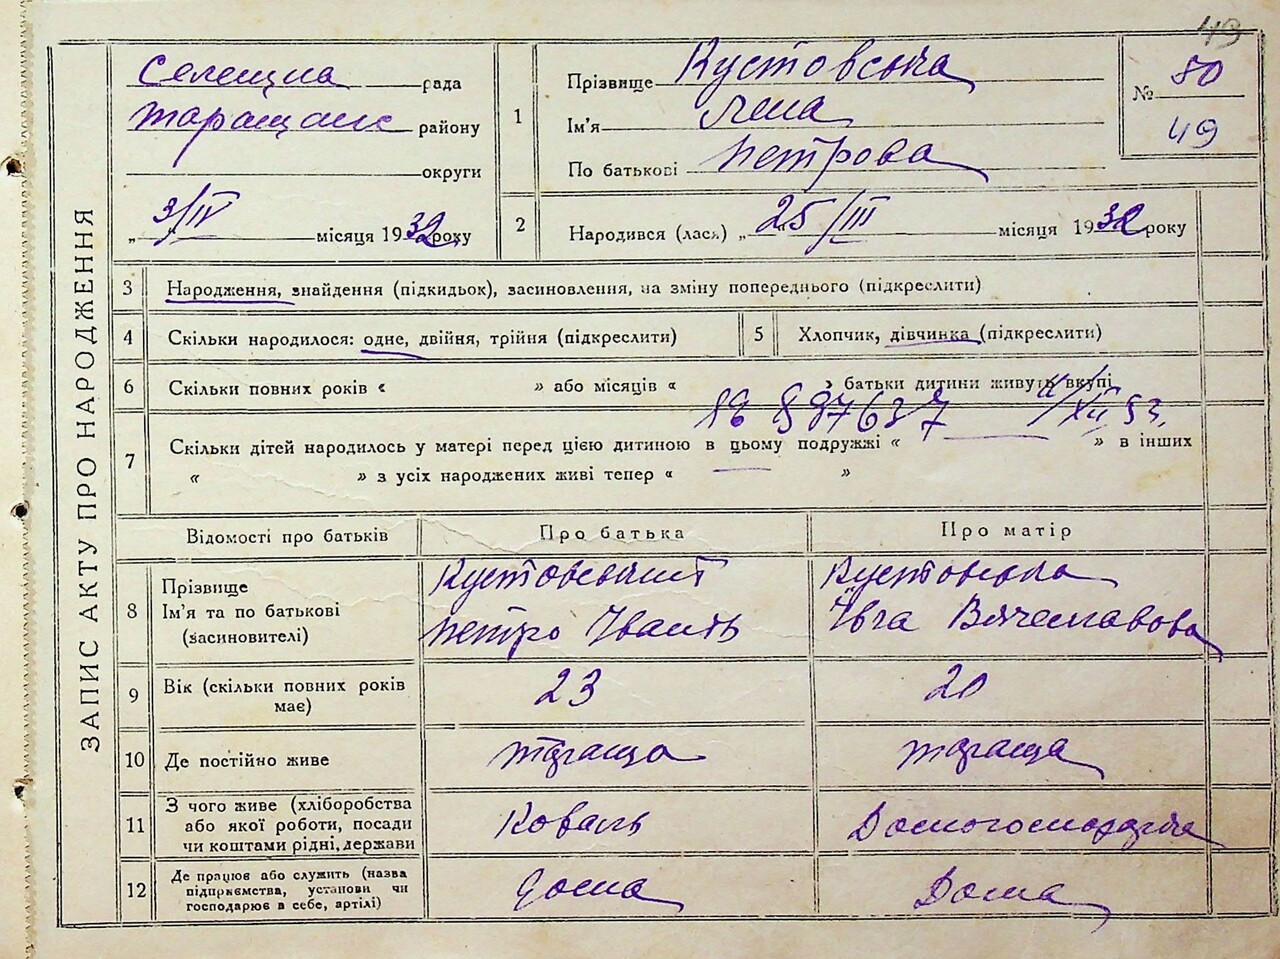 49
ЗАПИС АКТУ ПРО НАРОДЖЕННЯ
Селещна рада
Таращанс району
округи
„ 3/IV місяця 1932 року
1
Прізвище Кустовська
Ім'я
По батькові Петрова
№ 50
49
2
Народився (лася) „ 25/III місяця 1932 року
3 Народження, знайдення (підкидьок), засиновлення, на зміну попереднього (підкреслити)
4 Скільки народилося: одне, двійня, трійня (підкреслити)
5 Хлопчик, дівчинка (підкреслити)
6 Скільки повних років « » або місяців « » батьки дитини живуть вкупі
897637 11/XII 53
7 Скільки дітей народилось у матері перед цією дитиною в цьому подружжі « — » в інших
« » з усіх народжених живі тепер « »
Відомості про батьків Про батька Про матір
8 Прізвище
Ім'я та по батькові
(засиновителі)
Кустовський
Петро Іванів
Кустовська
Ївга Вячеславова
9 Вік (скільки повних років
має)
23 20
10 Де постійно живе Тараща Тараща
11 З чого живе (хліборобства
або якої роботи, посади
чи коштами рідні, держави
Коваль Домогосподарка
12 Де працює або служить (назва
підприємства, установи чи
господарює в себе, артілі)
Дома Дома